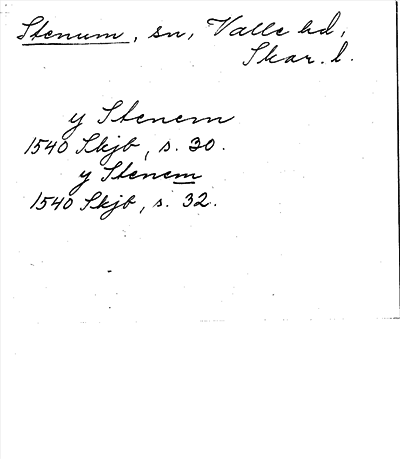 Stenum, sn, Valle hd,
Skar. l.
y Stenem
1540 Skjb, s. 30.
y Stenem
1540 Skjb, s. 32.